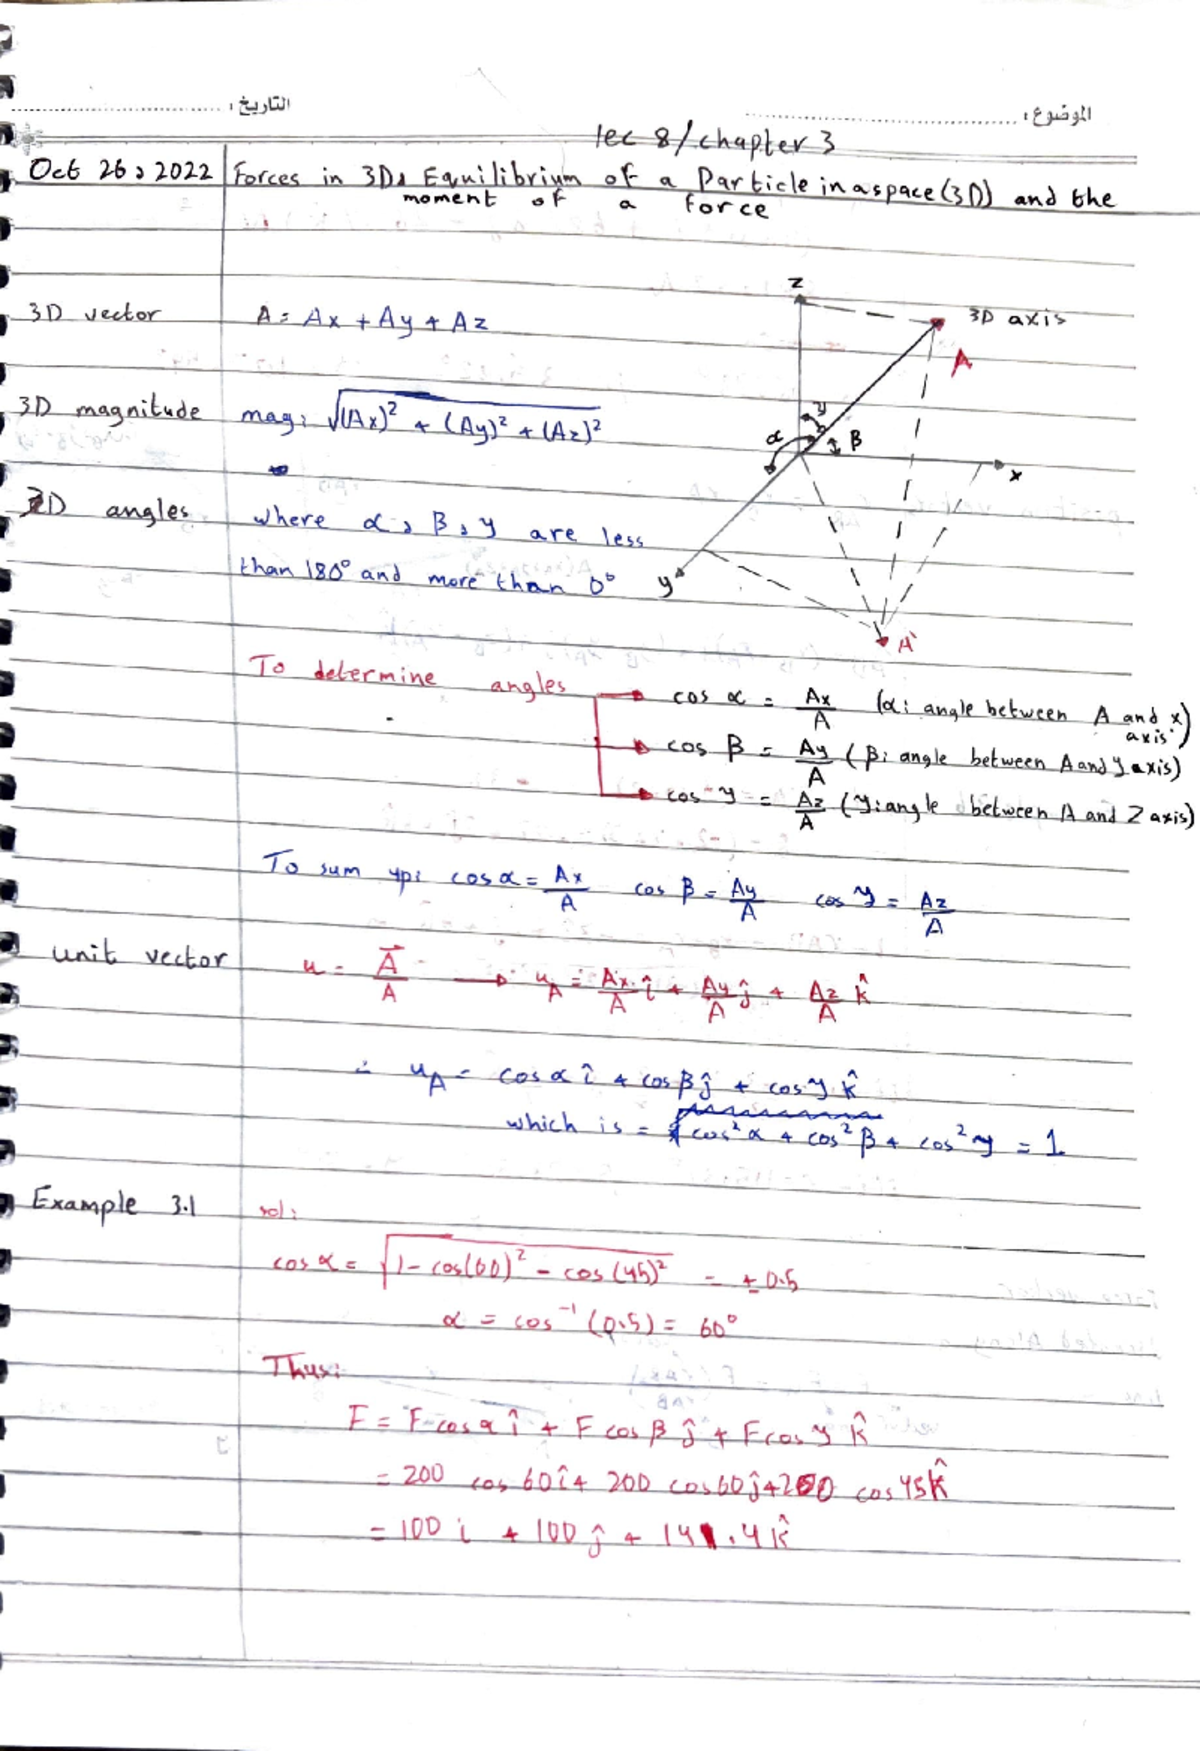 التاريخ :
الموضوع :
lec 8/chapter 3
Oct 26, 2022 Forces in 3D, Equilibrium of a Particle in a space (3D) and the
moment of a force
z
3D vector A = Ax + Ay + Az
3D axis
A
3D magnitude mag: √(Ax)² + (Ay)² + (Az)²
y
α
β
x
3D angles where α, β, y are less
than 180° and more than 0°
y
A'
To determine angles
cos α = Ax/A (α: angle between A and x axis)
cos β = Ay/A (β: angle between A and y axis)
cos y = Az/A (y: angle between A and Z axis)
To sum up: cos α = Ax/A cos β = Ay/A cos y = Az/A
unit vector u = A⃗/A → u_A = Ax/A î + Ay/A ĵ + Az/A k̂
∴ u_A = cos α î + cos β ĵ + cos y k̂
which is = cos² α + cos² β + cos² y = 1
Example 3.1 sol:
cos α = √1 - cos(60)² - cos(45)² = ± 0.5
α = cos⁻¹ (0.5) = 60°
Thus:
F = F cos α î + F cos β ĵ + F cos y k̂
= 200 cos 60 î + 200 cos 60 ĵ + 200 cos 45 k̂
= 100 i + 100 ĵ + 141.4 k̂